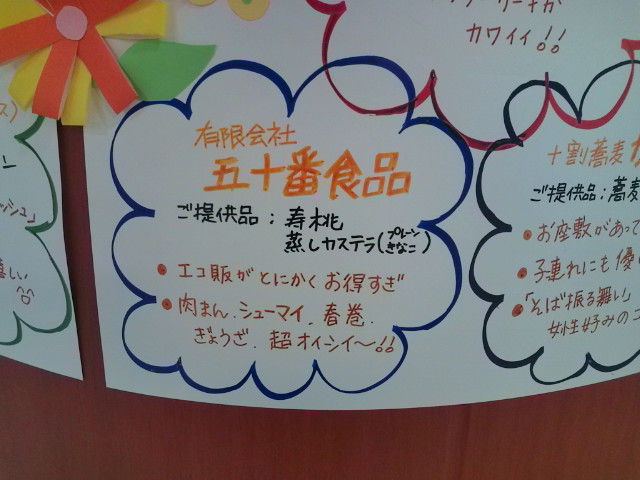 カワイイ!!
有限会社
五十番食品
ご提供品:寿桃
蒸しカステラ(プレーン きなこ)
・エコ販がとにかくお得すぎ
・肉まん、シューマイ、春巻、
ぎょうざ、超オイシイ〜!!
十割蕎麦
ご提供品:蕎麦
・お座敷があって
・子連れにも優
・「そば振る舞い」
女性好みのコ